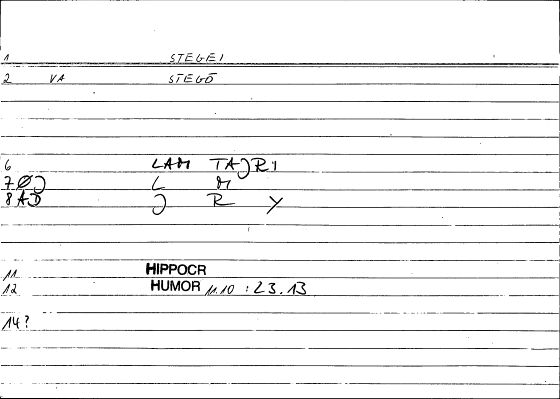 1 STEGEI
2 VA STEGŌ
6 LAM TAJRI
7 ØJ L M
8 AD J R Y
11 HIPPOCR
12 HUMOR 11.10 : 23.13
14?